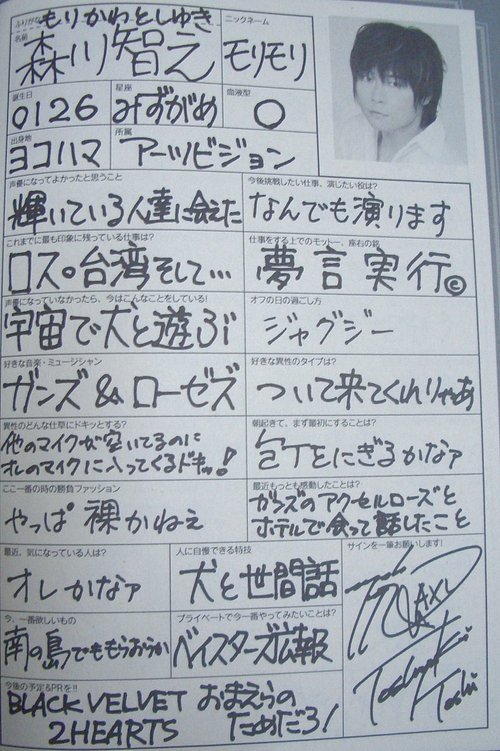 ふりがな もりかわとしゆき
名前 森川智之
ニックネーム
モリモリ
誕生日
0126
星座
みずがめ
血液型
O
出身地
ヨコハマ
所属
アーツビジョン
声優になってよかったと思うこと
輝いている人達に会えた
今後挑戦したい仕事、演じたい役は?
なんでも演ります
これまでに最も印象に残っている仕事は?
ロス。台湾そして…
仕事をする上でのモットー、座右の銘
夢言実行©
声優になっていなかったら、今はこんなことをしている!
宇宙で犬と遊ぶ
オフの日の過ごし方
ジャグジー
好きな音楽・ミュージシャン
ガンズ&ローゼズ
好きな異性のタイプは?
ついて来てくれりゃあ
異性のどんな仕草にドキッとする?
他のマイクが空いてるのに
オレのマイクに入ってくるドキッ!
朝起きて、まず最初にすることは?
包丁をにぎるかなァ
ここ一番の時の勝負ファッション
やっぱ裸かねえ
最近もっとも感動したことは?
ガンズのアクセルローズと
ホテルで食って話したこと
最近、気になっている人は?
オレかなァ
人に自慢できる特技
犬と世間話
サインを一筆お願いします!
今、一番欲しいもの
南の島でももらおうか
プライベートで今一番やってみたいことは?
ベイスターズ広報
Toshi
今後の予定&PRを!!
BLACK VELVET おまえらの
2HEARTS ためだろ!